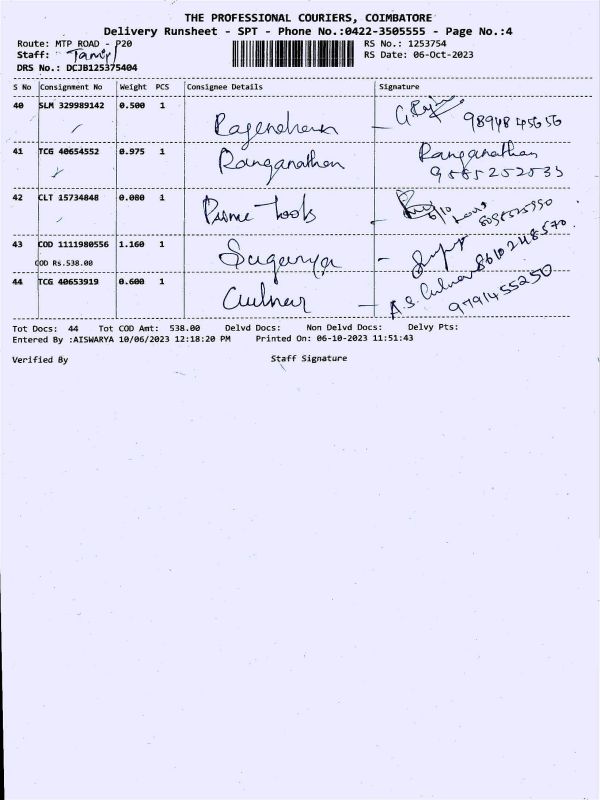 THE PROFESSIONAL COURIERS, COIMBATORE
Delivery Runsheet - SPT - Phone No.:0422-3505555 - Page No.:4
Route: MTP ROAD - P20 RS No.: 1253754
Staff: Tamil RS Date: 06-Oct-2023
DRS No.: DCJB125375404
S No Consignment No Weight PCS Consignee Details Signature
40 SLM 329989142 0.500 1
98948 45656
41 TCG 40654552 0.975 1 Ranganathan Ranganathan
42 CLT 15734848 0.080 1 Prime Tools
43 COD 1111980556 1.160 1 Suganya
8610248570
COD Rs.538.00
44 TCG 40653919 0.600 1
9791455250
Tot Docs: 44 Tot COD Amt: 538.00 Delvd Docs: Non Delvd Docs: Delvy Pts:
Entered By :AISWARYA 10/06/2023 12:18:20 PM Printed On: 06-10-2023 11:51:43
Verified By Staff Signature